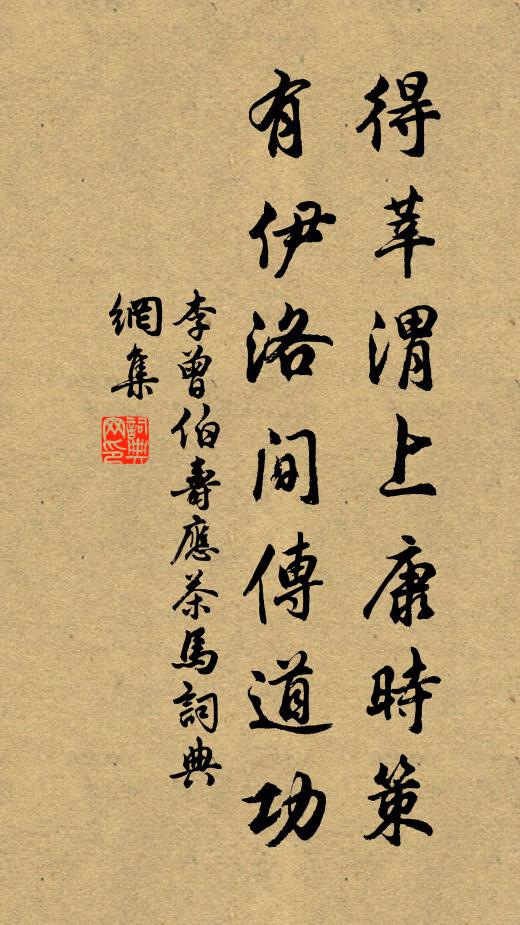 得莘渭上康時策
有伊洛間傳道功
李曾伯壽應茶馬詞典
網集
詞典
网印